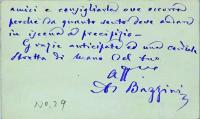 amici e consigliarla ove occorra
perchè da quanto sento deve andare
in iscena a precipizio.
Grazie anticipate ed una cordiale
stretta di mano dal tuo
aff
A. Bazzini
NO. 29